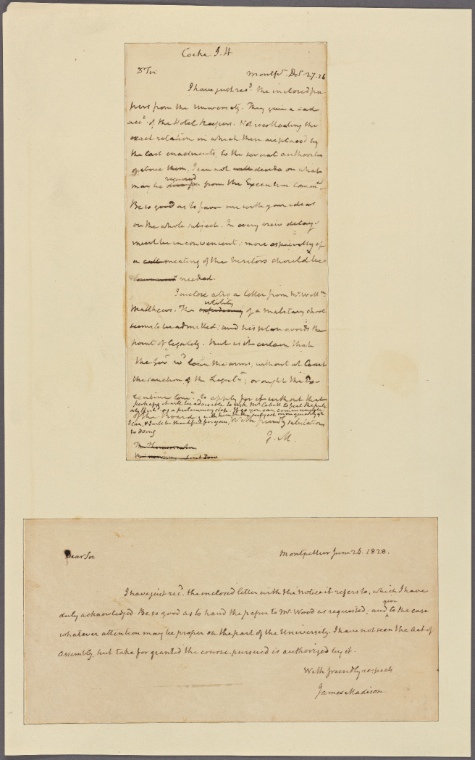 Cocke J. H
Dr Sir Montpr. Oct. 27. 26
I have just recd. the enclosed pa-
pers from the University. They give a sad
acct. of the Hotel Keepers. Not recollecting the
exact relation in which they are placed by
the last enactments, to the several authorities
I can not decide on what
may be required from the Executive Comme.
Be so good as to favor me with your ideas
on the whole subject. In every view delay
must be inconvenient; more especially if
a meeting of the Visitors should be
needed.
I inclose also a letter from Mr
Matthews. The utility of a military school
seems to be admitted; and his plan avoids the
point of legality. But is it certain that
the Govr. wd. loan the arms, without at least
the sanction of the Legislre; or ought the Ex-
ecutive Come. to apply for it without that
With friendly salutations
J. M.
Dear Sir Montpellier June 26. 1828.
I have just recd. the inclosed letter with the notice it refers to, which I have
duly acknowledged. Be so good as to hand the paper to Mr. Wood as requested, and give to the case
whatever attention may be proper on the part of the University. I have not seen the Act of
Assembly, but take for granted the course pursued is authorized by it.
With friendly respects
James Madison